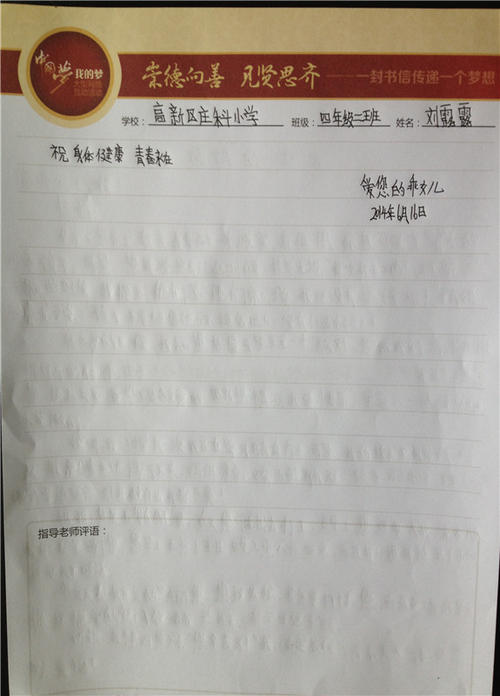 中国梦 我的梦
崇德向善 见贤思齐 ——一封书信传递一个梦想
学校:高新区庄科小学 班级:四年级二班 姓名:刘露露
祝 身体健康 青春永在
爱您的乖女儿
2014年6月16日
指导老师评语: